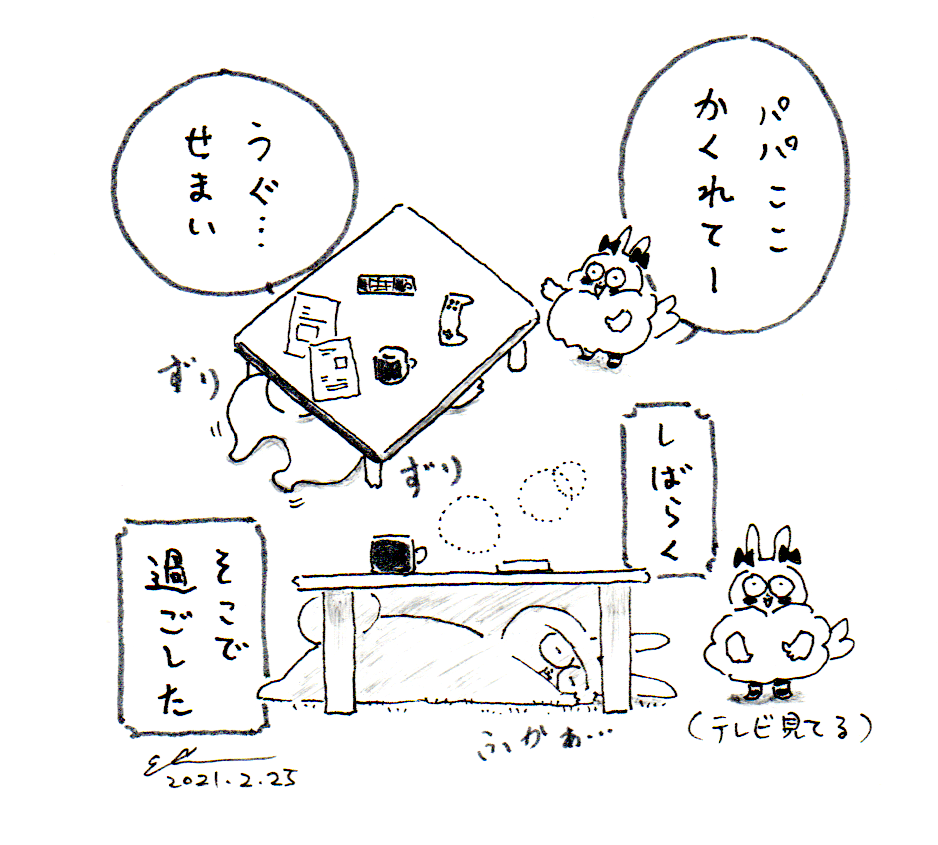 パパここ
かくれてー
うぐ…
せまい
ずり
ずり
しばらく
そこで
過ごした
ふがぁ…
(テレビ見てる)
2021.2.25